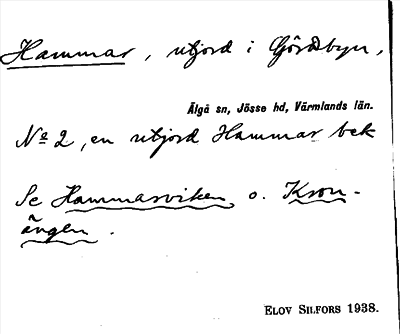 Hammar, utjord i Gördsbyn,
Älgå sn, Jösse hd, Värmlands län.
No 2, en utjord Hammar bek
Se Hammarviken o. Kron-
ängen.
ELOV SILFORS 1938.